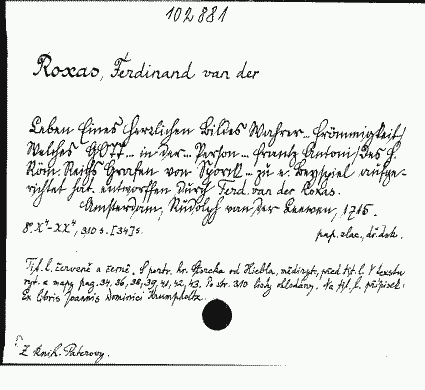 102881
Roxas, Ferdinand van der
Leben Eines Herzlichen Bildes Wahrer... Frömmigkeit/
Welches GOTT... in der... Person... Frantz Antoni/Des H.
Röm. Reichs Grafen von Sporck... zu e. Beyspiel aufge-
richtet hat. entworffen durch Ferd. van der Roxas.
Amsterdam, Rudolph van der Leewen, 1715.
8°. X⁴-XX⁴, 310 s. [34] s.
Tit. l. červeně a černě. S portr. hr. Sporcka od Hiebla, mědiryt. před tit. l. V textu
ryt. a mapy pag. 34, 36, 38, 39, 41, 42, 43. Po str. 310 listy vkládány. Na tit. l. přípisek:
Ex libris Joannis Dominici
Z knih. Paterovy.